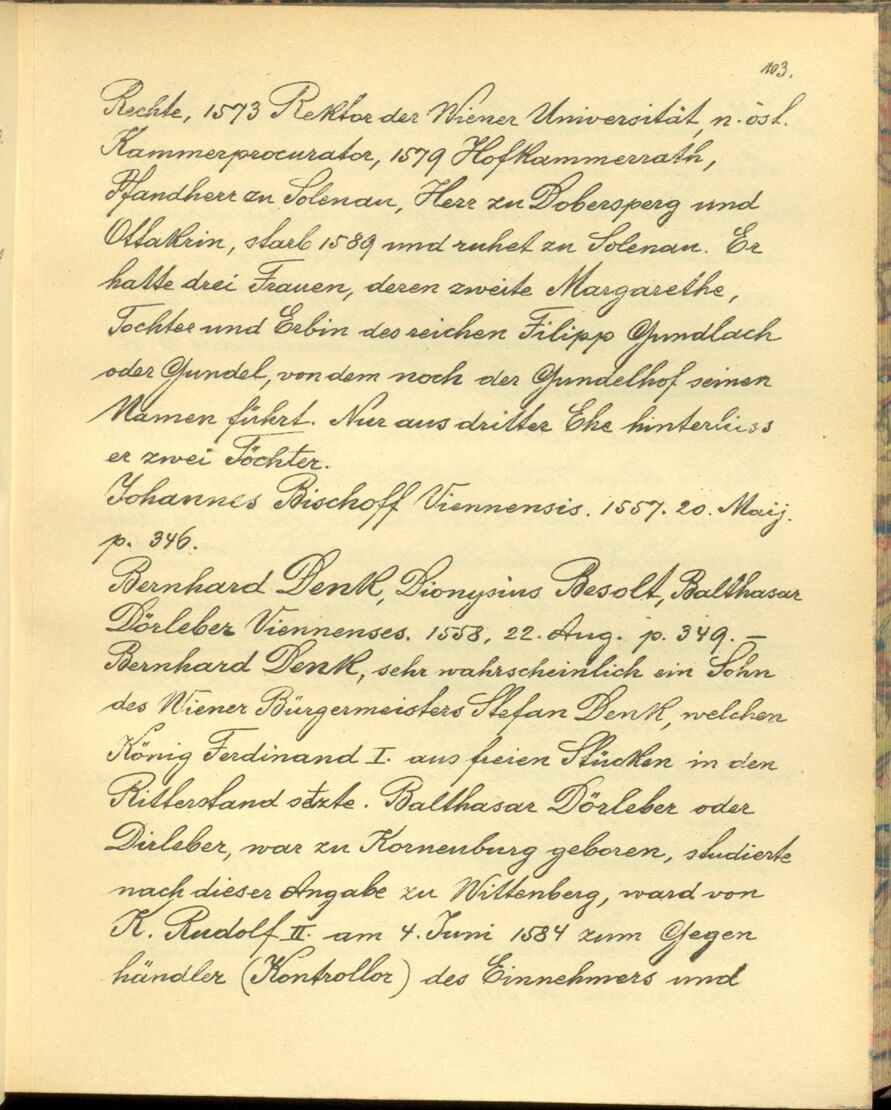 103.
Rechte, 1573 Rektor der Wiener Universität, n. öst.
Kammerprocurator, 1579 Hofkammerrath,
Pfandherr zu Solenau, Herr zu Dobersperg und
Ottakrin, starb 1589 und ruhet zu Solenau. Er
hatte drei Frauen, deren zweite Margarethe,
Tochter und Erbin des reichen Filipp Gundlach
oder Gundel, von dem noch der Gundelhof seinen
Namen führt. Nur aus dritter Ehe hinterliess
er zwei Töchter.
Johannes Bischoff Viennensis. 1557. 20. Maij.
p. 346.
Bernhard Denk, Dionysius Besolt, Balthasar
Dörleber Viennenses. 1558, 22. Aug. p. 349. —
Bernhard Denk, sehr wahrscheinlich ein Sohn
des Wiener Bürgermeisters Stefan Denk, welchen
König Ferdinand I. aus freien Stücken in den
Ritterstand setzte. Balthasar Dörleber oder
Dirleber, war zu Korneuburg geboren, studierte
nach dieser Angabe zu Wittenberg, ward von
K. Rudolf II. am 4. Juni 1584 zum Gegen
händler (Kontrollor) des Einnehmers und